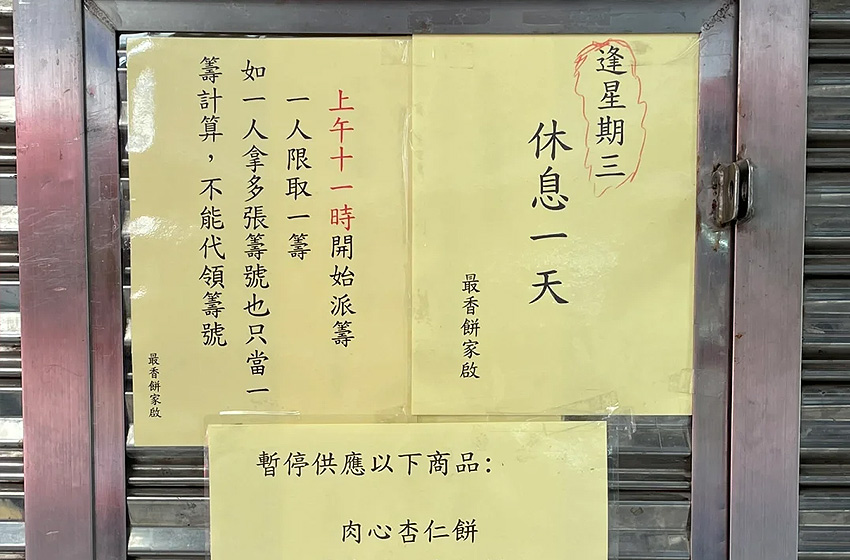 逢星期三
休息一天
最香餅家啟
上午十一時開始派籌
一人限取一籌
如一人拿多張籌號也只當一
籌計算，不能代領籌號
最香餅家啟
暫停供應以下商品：
肉心杏仁餅